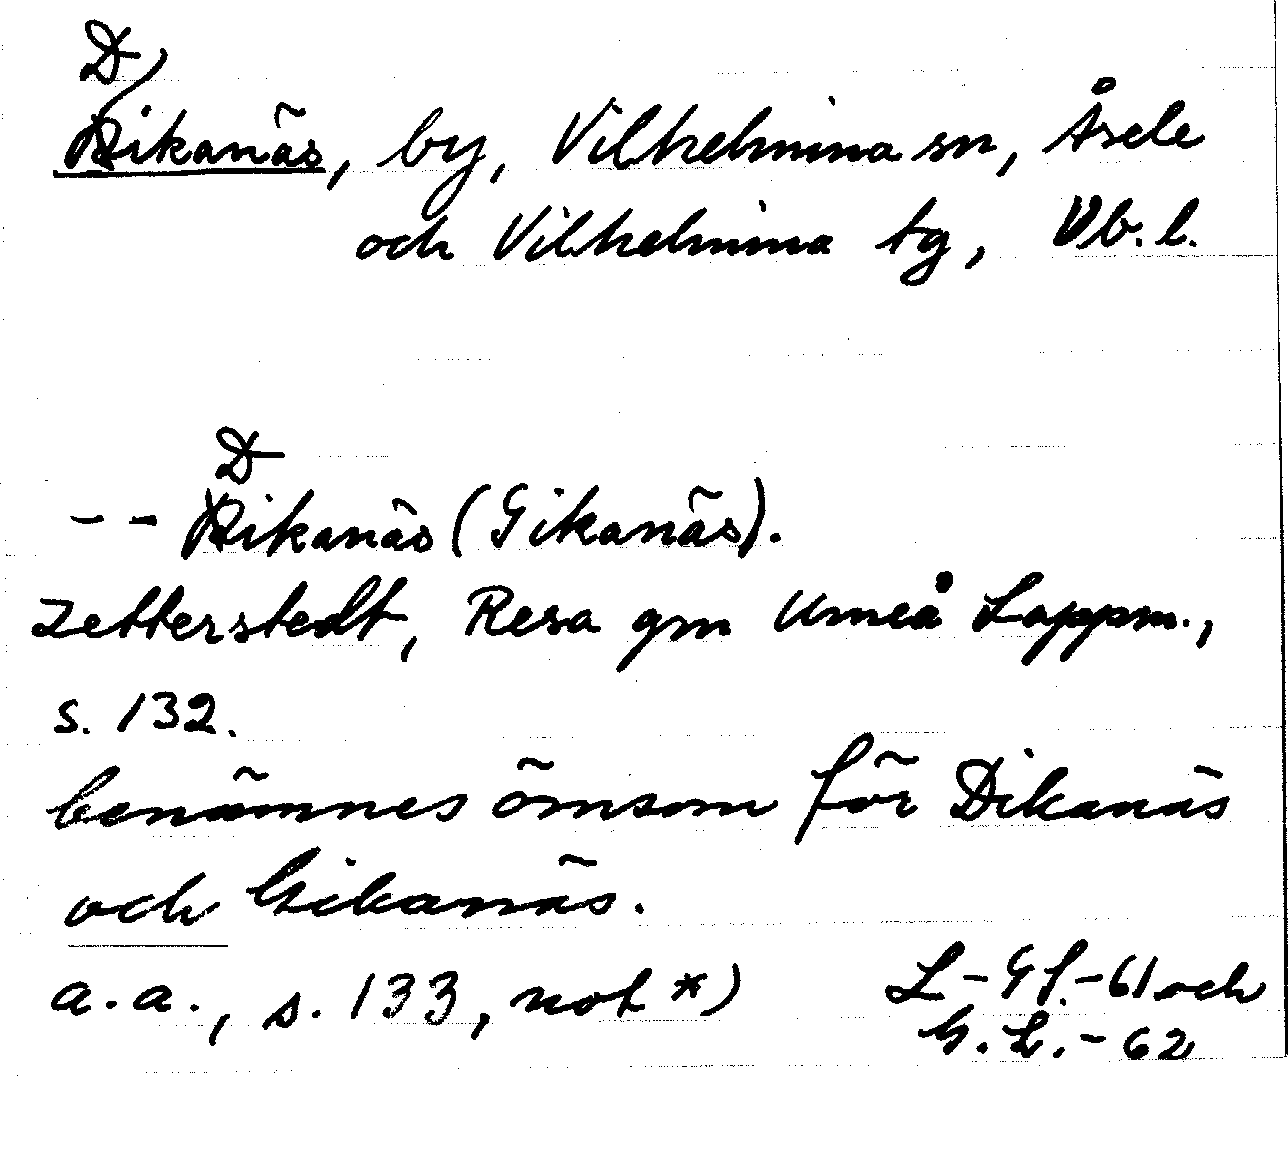 D
Dikanäs, by, Vilhelmina sn, Åsele
och Vilhelmina tg, Vb. l.
D
-- Dikanäs (Gikanäs).
Zetterstedt, Resa gm Umeå Lappm.,
s. 132.
benämnes ömsom för Dikanäs
och Gikanäs.
a.a., s. 133, not *)
L-Gf.-61 och
G.L.-62